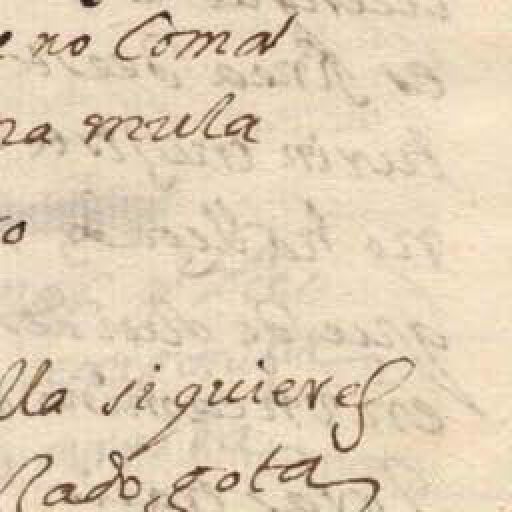 e no Coma
na mula
to
lla si quieres
lado, gota